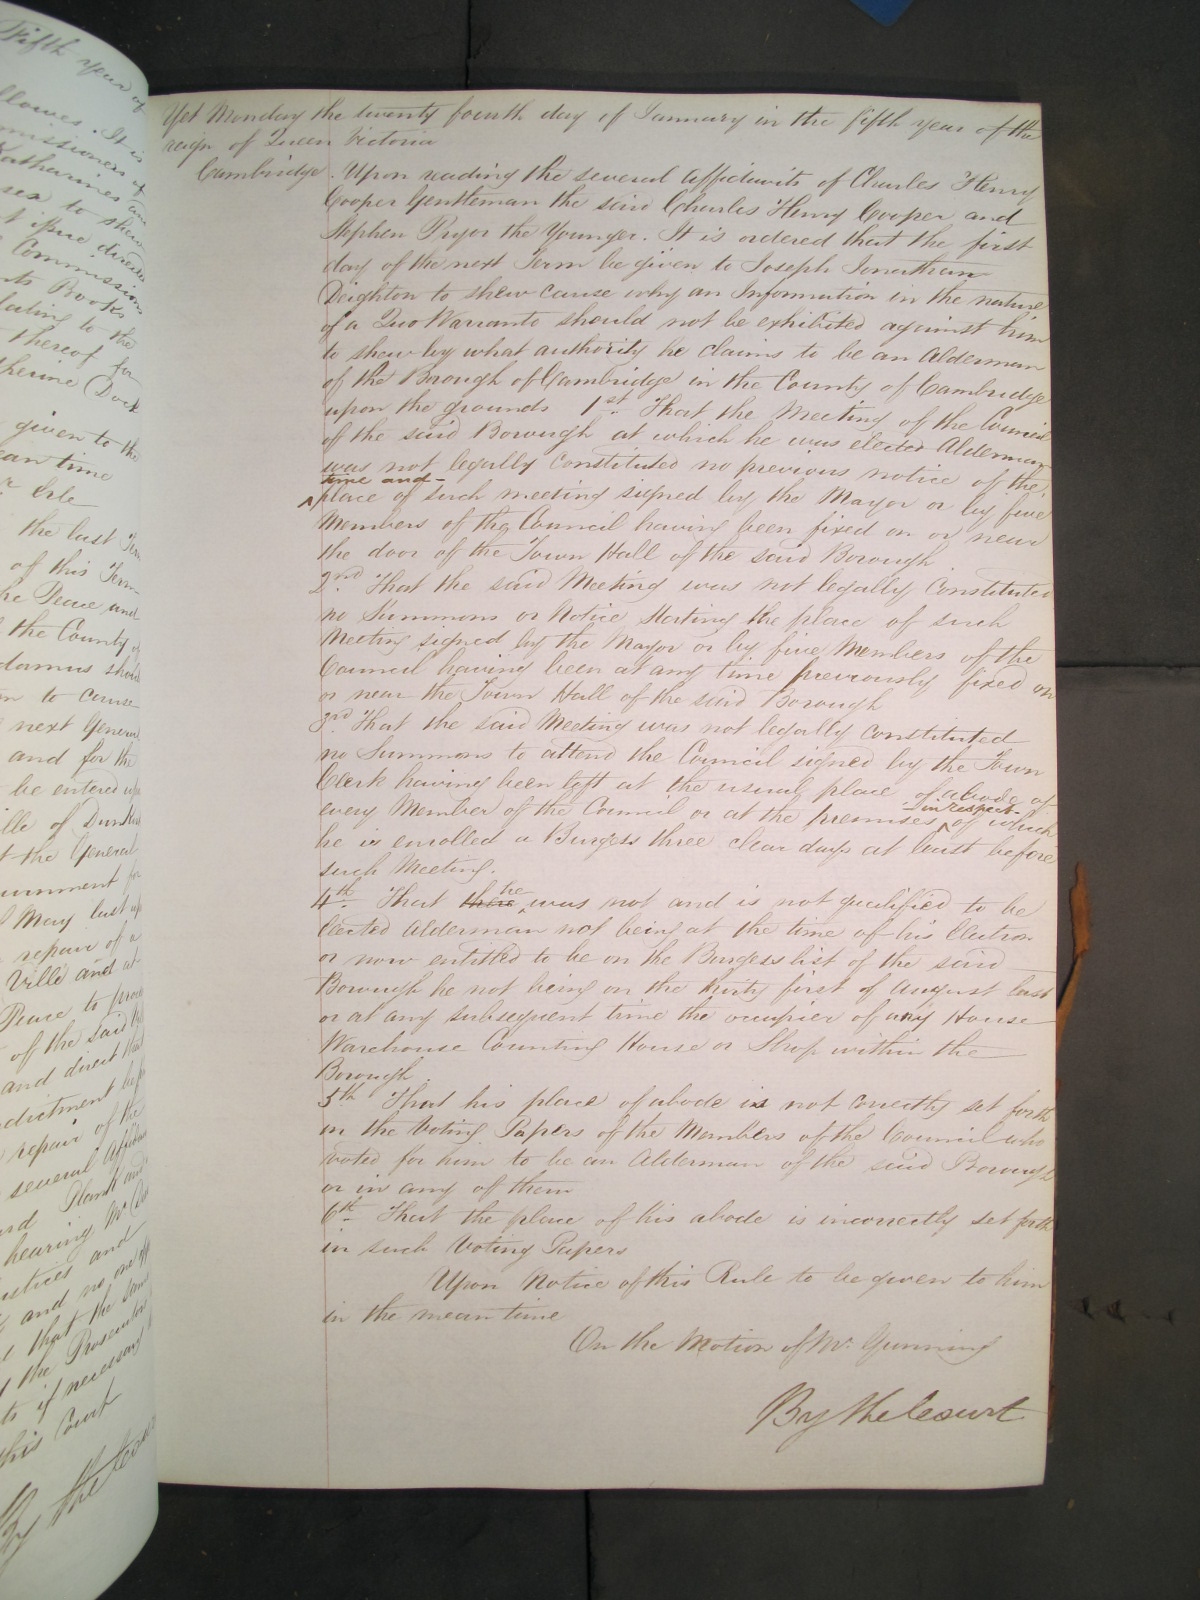 Fifth year of
llows. It is
missioners of
Katharines
sea to shew
t issue directed
Commission
nts Books
lating to the
thereof for
therine Dock
given to the
ean time
Mr Erle
the last Term
of this Term
he Peace and
the County of
damus should
m to cause
next General
and for the
be entered up
ille of
t the General
ournment for
May last
repair of a
Ville and
Peace to
of the said
and direct that
dictment
repair of the
several Affidavits
hearing Mr
ustices and
and no one
that the same
the Prosecutor
ts if necessary
this Court
By the Court
Yet Monday the twenty fourth day of January in the fifth year of the
reign of Queen Victoria
Cambridge. Upon reading the several Affidavits of Charles Henry
Cooper Gentleman the said Charles Henry Cooper and
Stephen Pryor the Younger. It is ordered that the first
day of the next Term be given to Joseph Jonathan
Deighton to shew cause why an Information in the nature
of a Quo Warranto should not be exhibited against him
to shew by what authority he claims to be an Alderman
of the Borough of Cambridge in the County of Cambridge
upon the grounds 1st. That the Meeting of the Council
of the said Borough at which he was elected Alderman
was not legally constituted no previous notice of the
time and
place of such meeting signed by the Mayor or by five
Members of the Council having been fixed on or near
the door of the Town Hall of the said Borough
2nd. That the said Meeting was not legally Constituted
no Summons or Notice stating the place of such
Meeting signed by the Mayor or by five Members of the
Council having been at any time previously fixed on
or near the Town Hall of the said Borough
3rd. That the said Meeting was not legally constituted
no Summons to attend the Council signed by the Town
Clerk having been left at the usual place of abode of
every Member of the Council or at the premises in respect of which
he is enrolled a Burgess three clear days at least before
such Meeting.
4th. That there he was not and is not qualified to be
Elected Alderman not being at the time of his Election
or now entitled to be on the Burgess list of the said
Borough he not being on the thirty first of August last
or at any subsequent time the occupier of any House
Warehouse Counting House or Shop within the
Borough.
5th That his place of abode is not correctly set forth
in the Voting Papers of the Members of the Council who
voted for him to be an Alderman of the said Borough
or in any of them
6th. That the place of his abode is incorrectly set forth
in such Voting Papers
Upon Notice of this Rule to be given to him
in the mean time
On the Motion of Mr. Gunning
By the Court